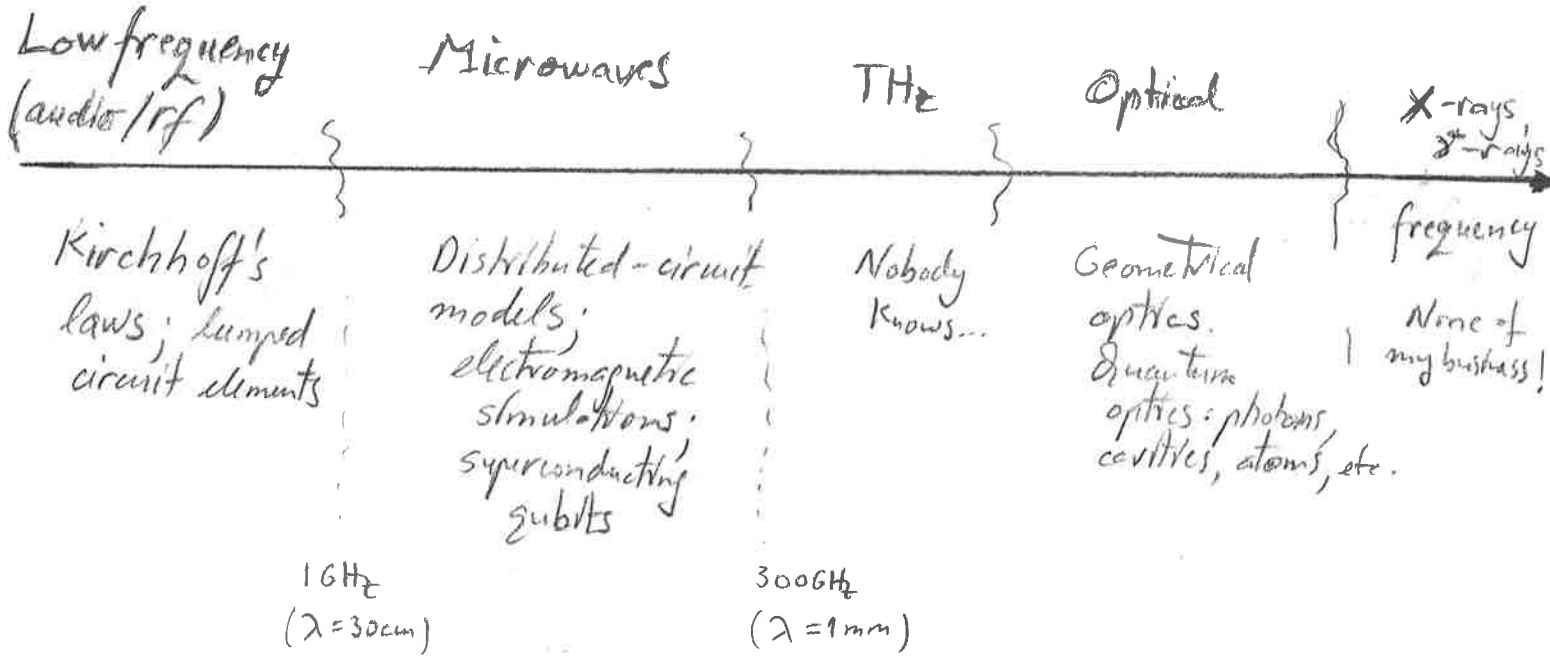 Low frequency
(audio/rf)
Microwaves
THz
Optical
X-rays,
γ-rays
frequency
Kirchhoff's
laws; lumped
circuit elements
Distributed-circuit
models;
electromagnetic
simulations;
superconducting
qubits
Nobody
knows...
Geometrical
optics.
Quantum
optics: photons,
cavities, atoms, etc.
None of
my business!
1GHz
(λ=30cm)
300GHz
(λ=1mm)